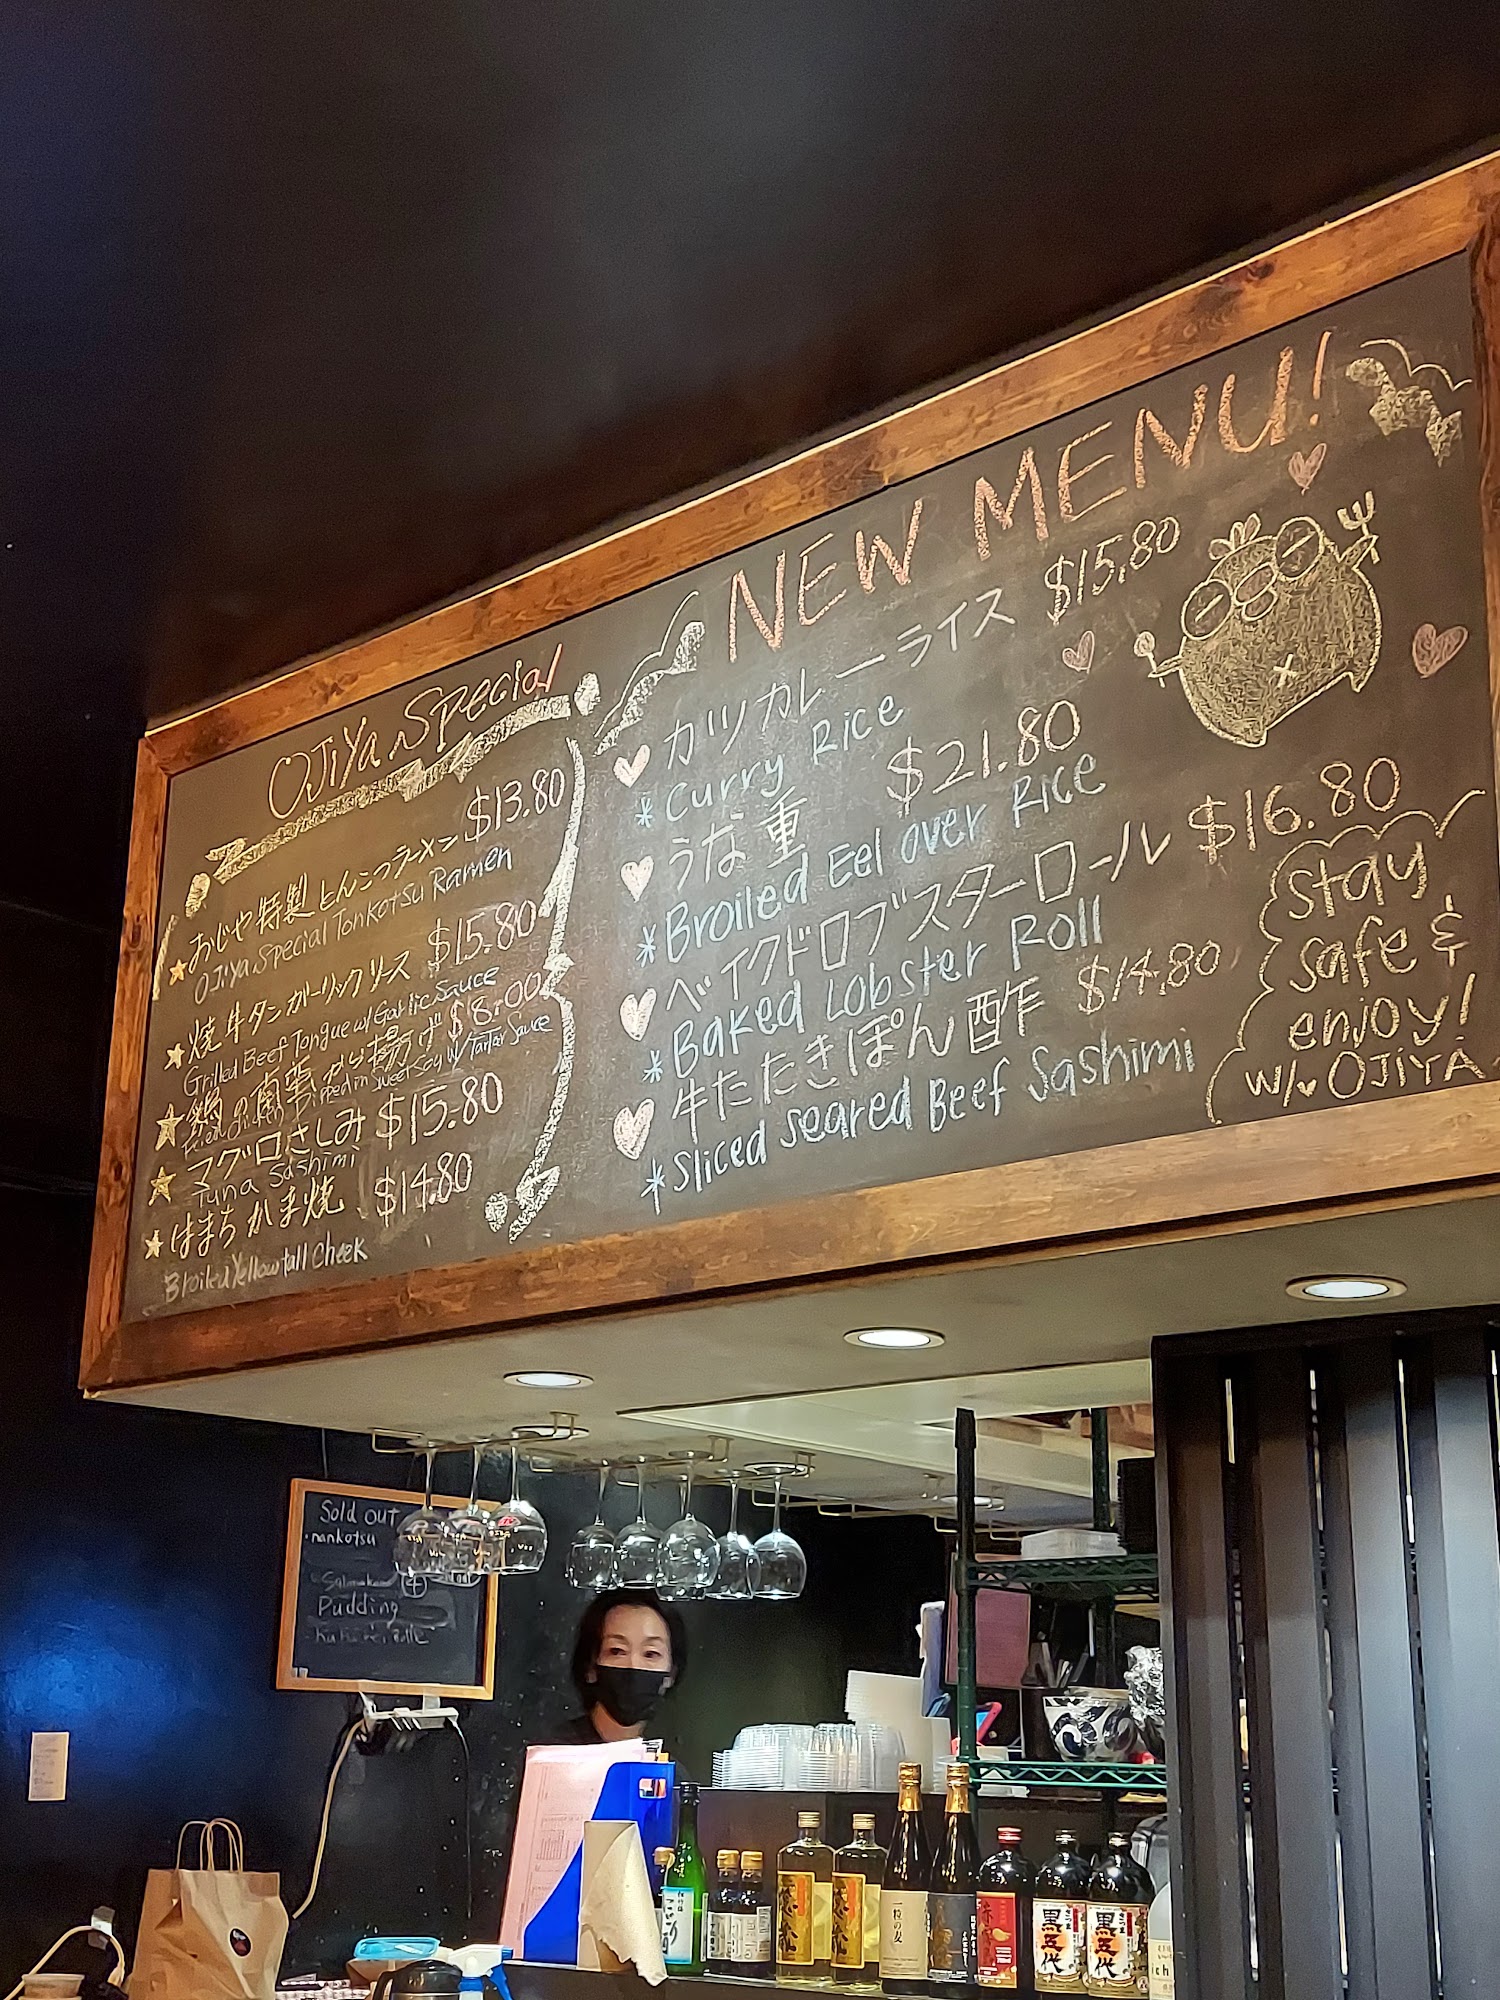 OJiya Special
おじや特製 とんこつラーメン $13.80
OJiya Special Tonkotsu Ramen
焼牛タンガーリックソース $15.80
Grilled Beef Tongue w/ Garlic Sauce
鶏の南蛮 から揚げ $8.00
Fried Chicken Dipped in Sweet Soy w/ Tartar Sauce
マグロさしみ $15.80
Tuna Sashimi
はまち かま焼 $14.80
Broiled Yellowtail Cheek
NEW MENU!
カツカレーライス $15.80
* Curry Rice
うな重 $21.80
* Broiled Eel over Rice
ベイクドロブスターロール $16.80
* Baked Lobster Roll
牛たたきぽん酢 $14.80
* Sliced Seared Beef Sashimi
Stay
safe &
enjoy!
W/ OJIYA
Sold out
nankotsu
Pudding
一粒の麦
黒五代
黒五代